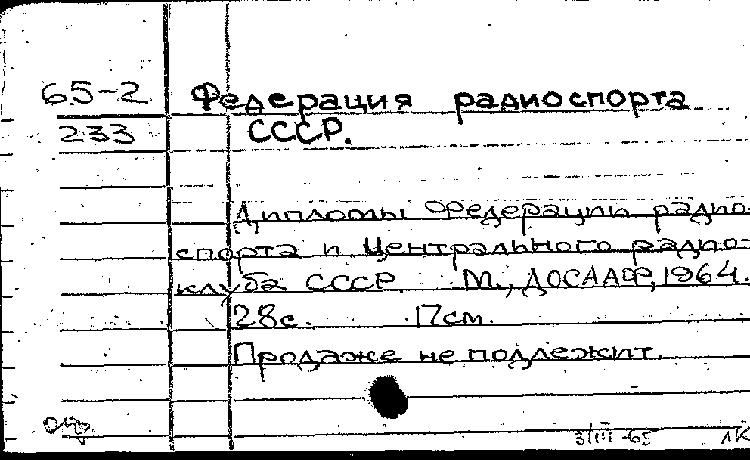 65-2 Федерация радиоспорта
233 СССР.
Дипломы Федерации радио-
спорта и Центрального радио-
клуба СССР. М., ДОСААФ, 1964.
28с. 17см.
Продаже не подлежит.
3/III-65 ЛК